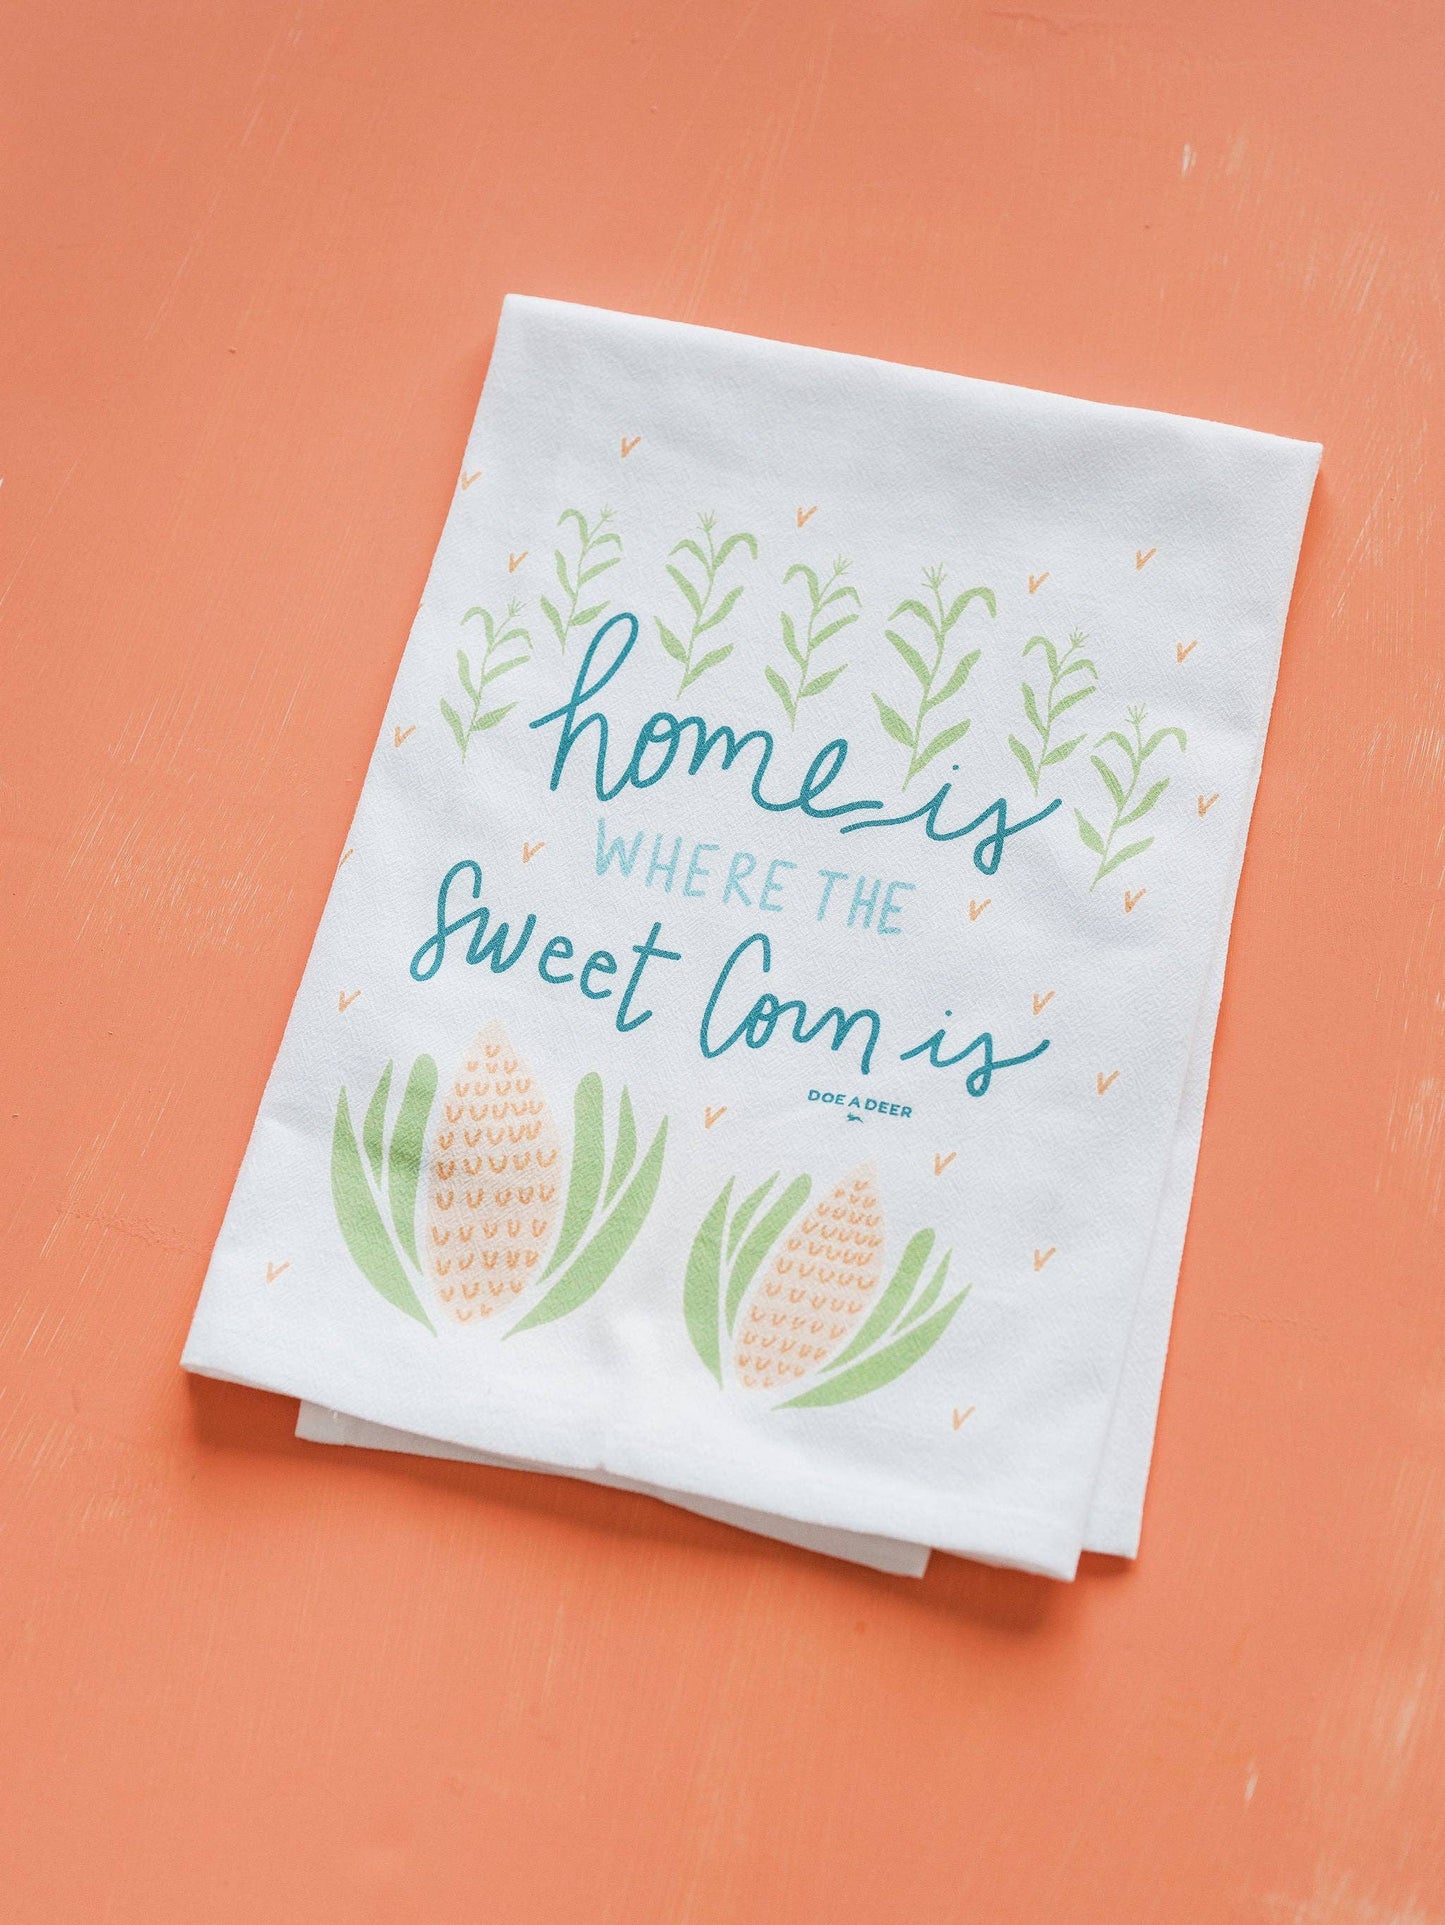 home is
WHERE THE
Sweet Corn is
DOE A DEER